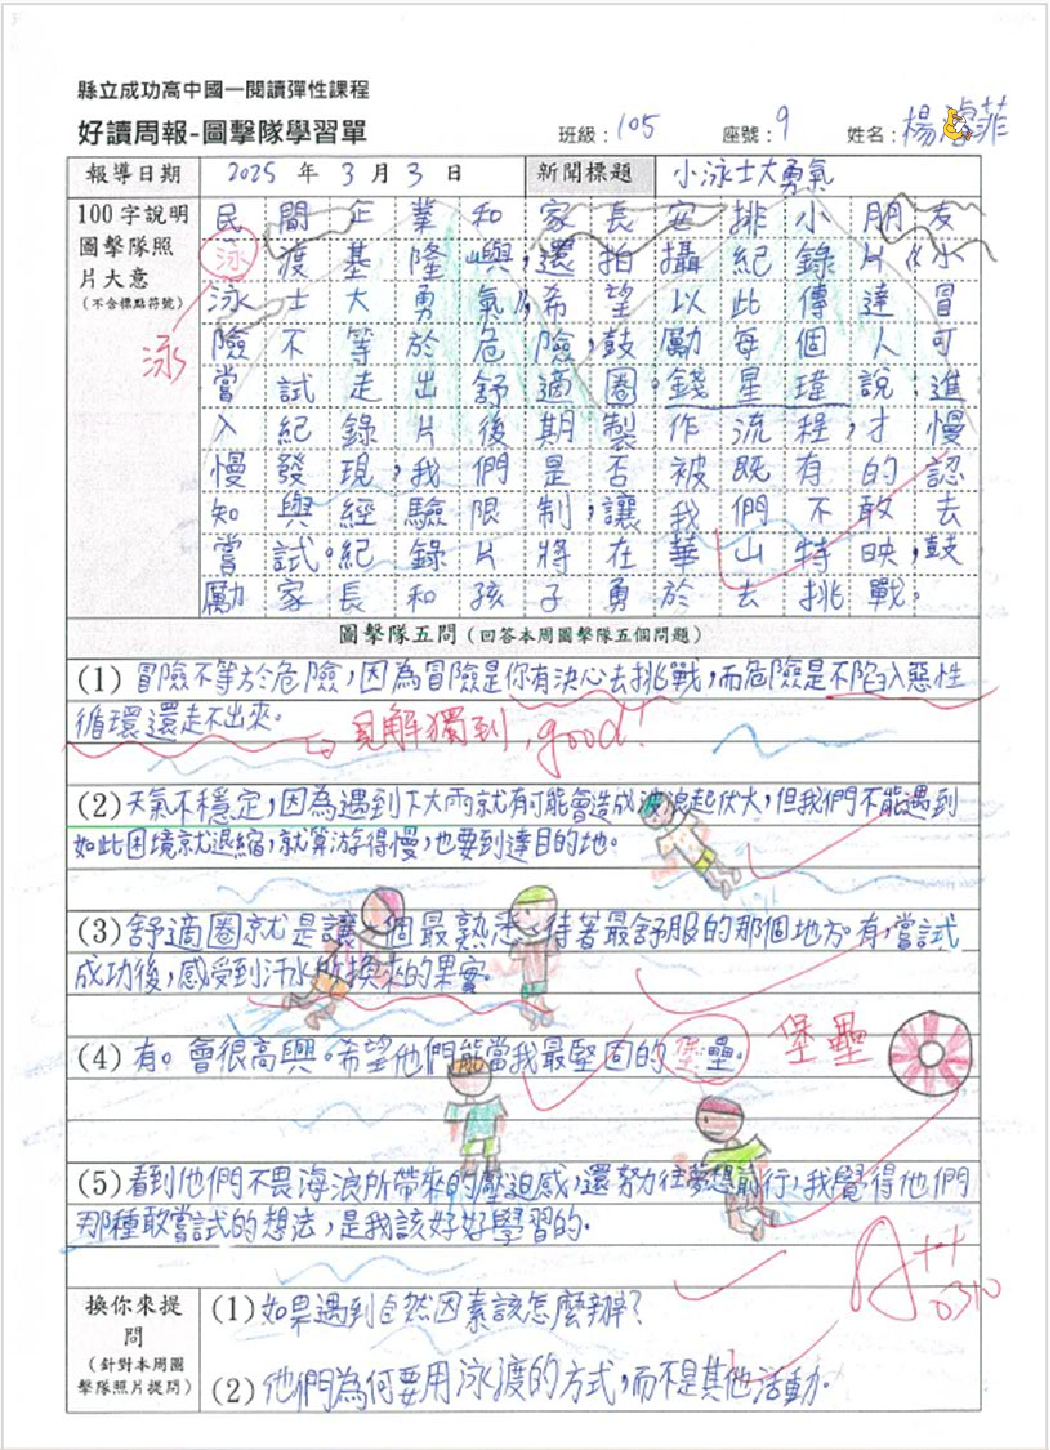 縣立成功高中國一閱讀彈性課程
好讀周報-圖擊隊學習單
班級：105 座號：9 姓名：楊菲
報導日期 2025 年 3 月 3 日 新聞標題 小泳士大勇氣
100字說明圖擊隊照片大意
（不含標點符號）
民間企業和家長安排小朋友
泳渡基隆嶼，還拍攝紀錄片《小
泳士大勇氣》，希望以此傳達冒
險不等於危險，鼓勵每個人可
嘗試走出舒適圈。錢星瑋說，進
入紀錄片後期製作流程，才慢
慢發現，我們是否被既有的認
知與經驗限制，讓我們不敢去
嘗試。紀錄片將在華山特映，鼓
勵家長和孩子勇於去挑戰。
泳
圖擊隊五問（回答本周圖擊隊五個問題）
(1) 冒險不等於危險，因為冒險是你有決心去挑戰，而危險是不陷入惡性
循環還走不出來。
見解獨到，good!
(2) 天氣不穩定，因為遇到下大雨就有可能會造成波浪起伏大，但我們不能遇到
如此困境就退縮，就算游得慢，也要到達目的地。
(3) 舒適圈就是讓一個最熟悉、待著最舒服的那個地方。有，嘗試
成功後，感受到汗水所換來的果實。
(4) 有。會很高興。希望他們能當我最堅固的堡壘。
堡壘
(5) 看到他們不畏海浪所帶來的壓迫感，還努力往夢想前行，我覺得他們
那種敢嘗試的想法，是我該好好學習的。
A++
0310
換你來提問
（針對本周圖擊隊照片提問）
(1) 如果遇到自然因素該怎麼辦？
(2) 他們為何要用泳渡的方式，而不是其他活動。